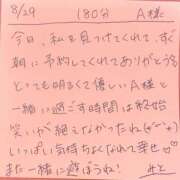 8/29 180分 A様
今日、私を見つけてくれて、すぐ
朝に予約してくれてありがとう
とっても明るくて優しいA様と
一緒に過ごす時間は終始
笑いが絶えなかったね(*^ー^*)
いっぱい気持ちよくなれて幸せ♡
また一緒に遊ぼうね!